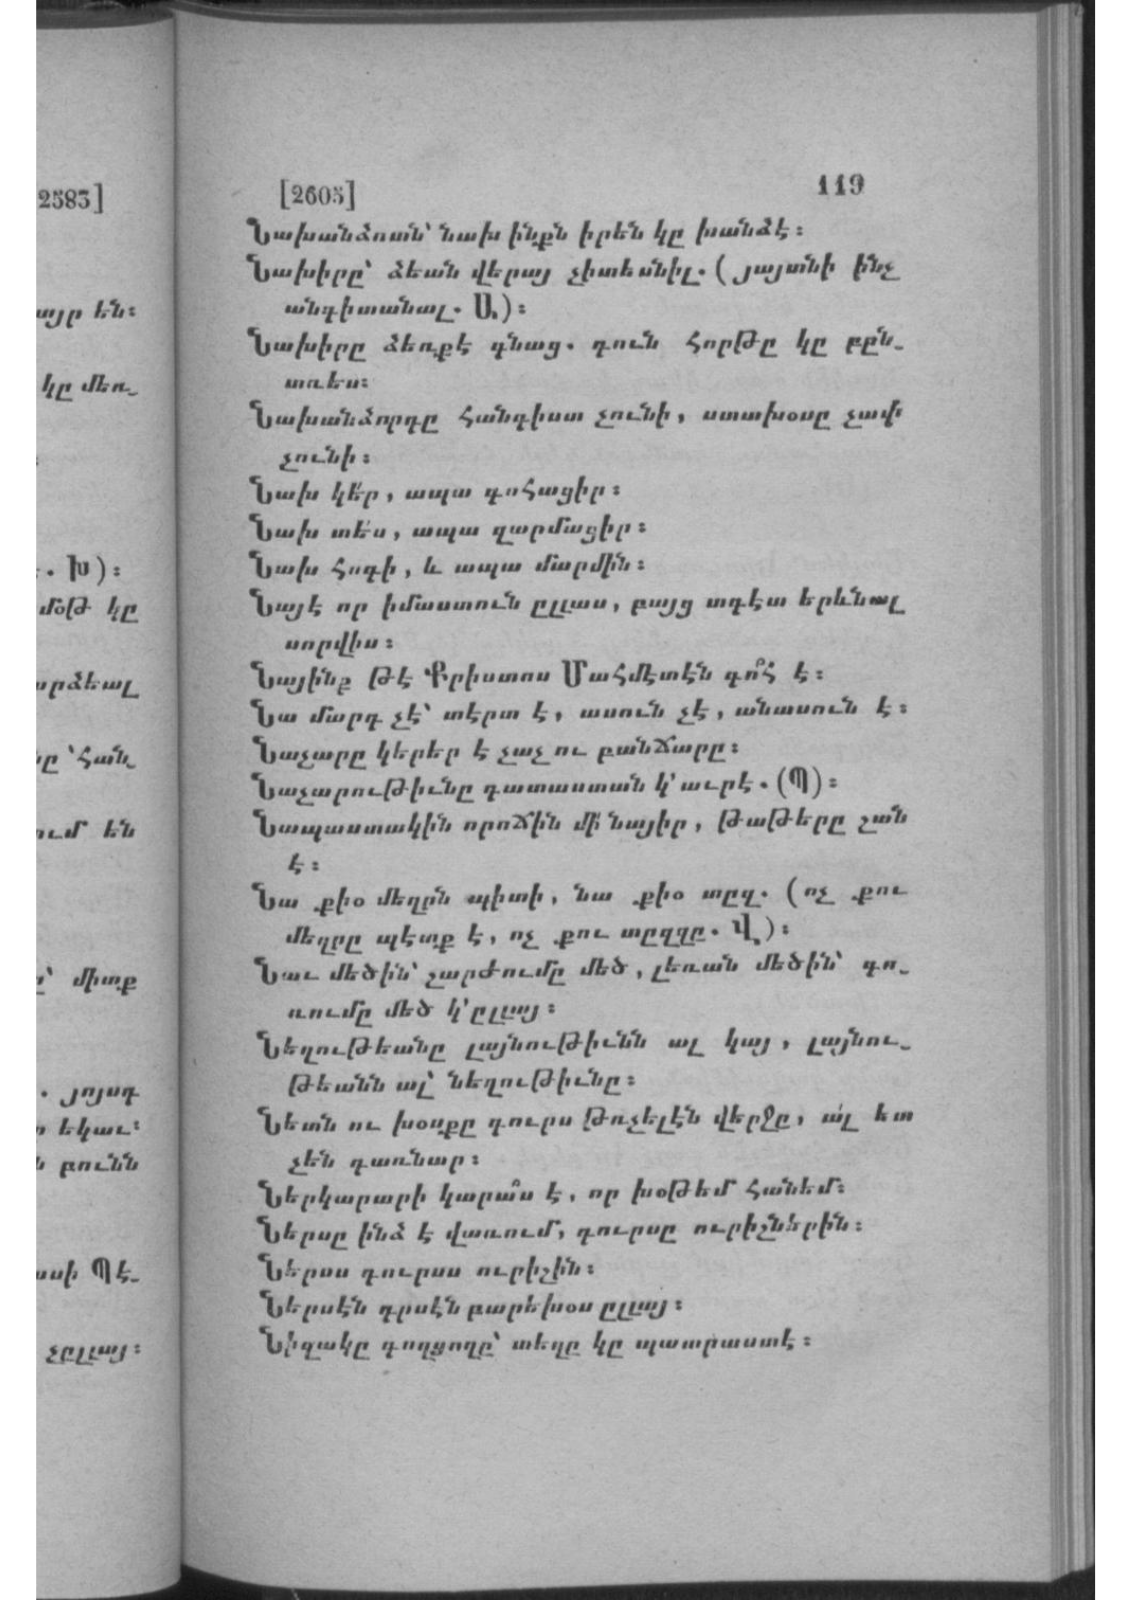 2583]
այր են։
կը մեռ֊
. Խ)։
մօթ կը
արձեալ
ըը ՝հան֊
ում են
՝ միտք
. յոյսդ
եկաւ։
բունն
ասի Պէ֊
չըլլայ։
[2605] 119
Նախանձոտն՝ նախ ինքն իրեն կը խանձէ։
Նախիրը՝ ձեան վերայ չիտեսնիլ. (յայտնի ինչ
անգիտանալ. Ա)։
Նախիրը ձեռքէ գնաց. դուն հորթը կը բըն֊
տռես։
Նախանձորդը հանգիստ չունի, ստախօսը չափ
չունի։
Նախ կե՛ր, ապա գոհացիր։
Նախ տե՛ս, ապա զարմացիր։
Նախ հոգի, և ապա մարմին։
Նայէ որ իմաստուն ըլլաս, բայց տգէտ երևնալ
սորվիս։
Նայինք թէ Քրիստոս Մահմէտէն գո՞հ է։
Նա մարդ չէ՝ տէրտ է, ասուն չէ, անասուն է։
Նաչարը կերեր է չաչ ու բանճարը։
Նաչարութիւնը դատաստան կ՚աւրէ. (Պ)։
Նապաստակին որոճին մի՛ նայիր, թաթերը շան
է։
Նա քիօ մեղրն պիտի, նա քիօ տըզ. (ոչ քու
մեղրը պէտք է, ոչ քու տըզզը. Վ)։
Նաւ մեծին՝ շարժումը մեծ, լեռան մեծին՝ գո֊
ռումը մեծ կ՚ըլլայ։
Նեղութեանը լայնութիւնն ալ կայ, լայնու֊
թեանն ալ՝ նեղութիւնը։
Նետն ու խօսքը դուրս թռչելէն վերջը, ա՛լ ետ
չեն դառնար։
Ներկարարի կարա՞ս է, որ խօթեմ հանեմ։
Ներսը ինձ է վառում, դուրսը ուրիշներին։
Ներսս դուրսս ուրիշին։
Ներսէն դրսէն բարեխօս ըլլայ։
Նիզակը գողցողը՝ տեղը կը պատրաստէ։